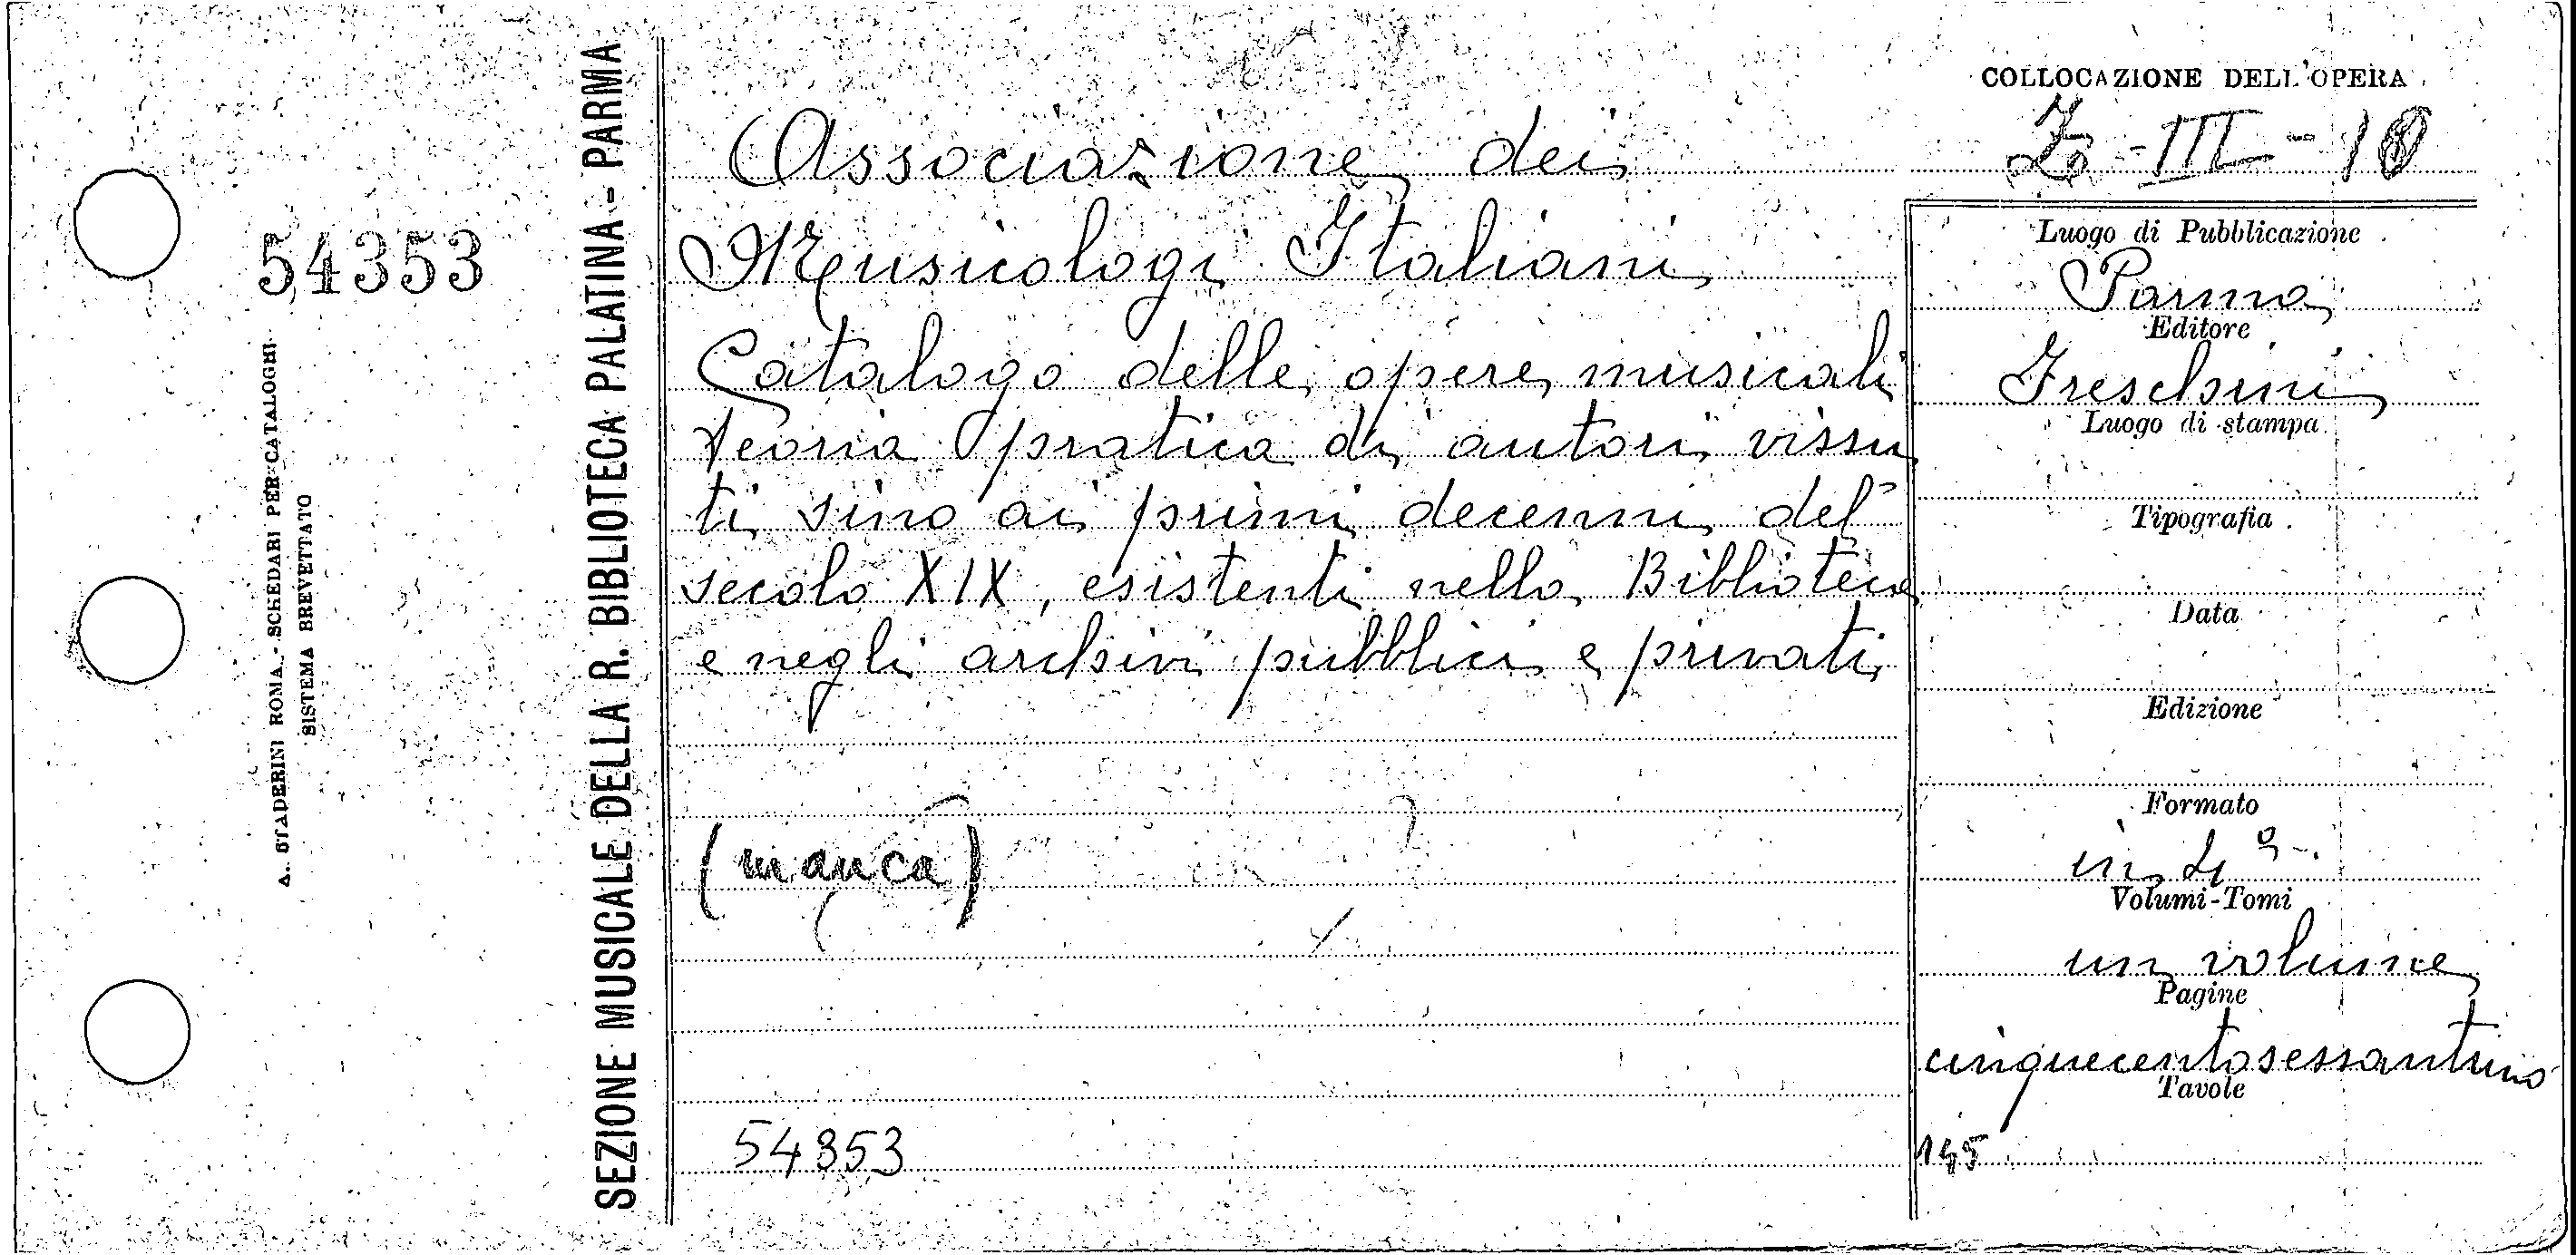 54353
A. STADERINI ROMA - SCHEDARI PER CATALOGHI
SISTEMA BREVETTATO
SEZIONE MUSICALE DELLA R. BIBLIOTECA PALATINA - PARMA
Associazione dei
Musicologi Italiani
Catalogo delle opere musicali
teoria pratica di autori vissu
ti sino ai primi decenni del
secolo XIX, esistenti nella Biblioteca
e negli archivi pubblici e privati
(manca)
54353
COLLOCAZIONE DELL'OPERA
Z-III-10
Luogo di Pubblicazione
Parma
Editore
Freschini
Luogo di stampa
Tipografia
Data
Edizione
Formato
in 4º
Volumi-Tomi
un volume
Pagine
cinquecentosessantuno
Tavole